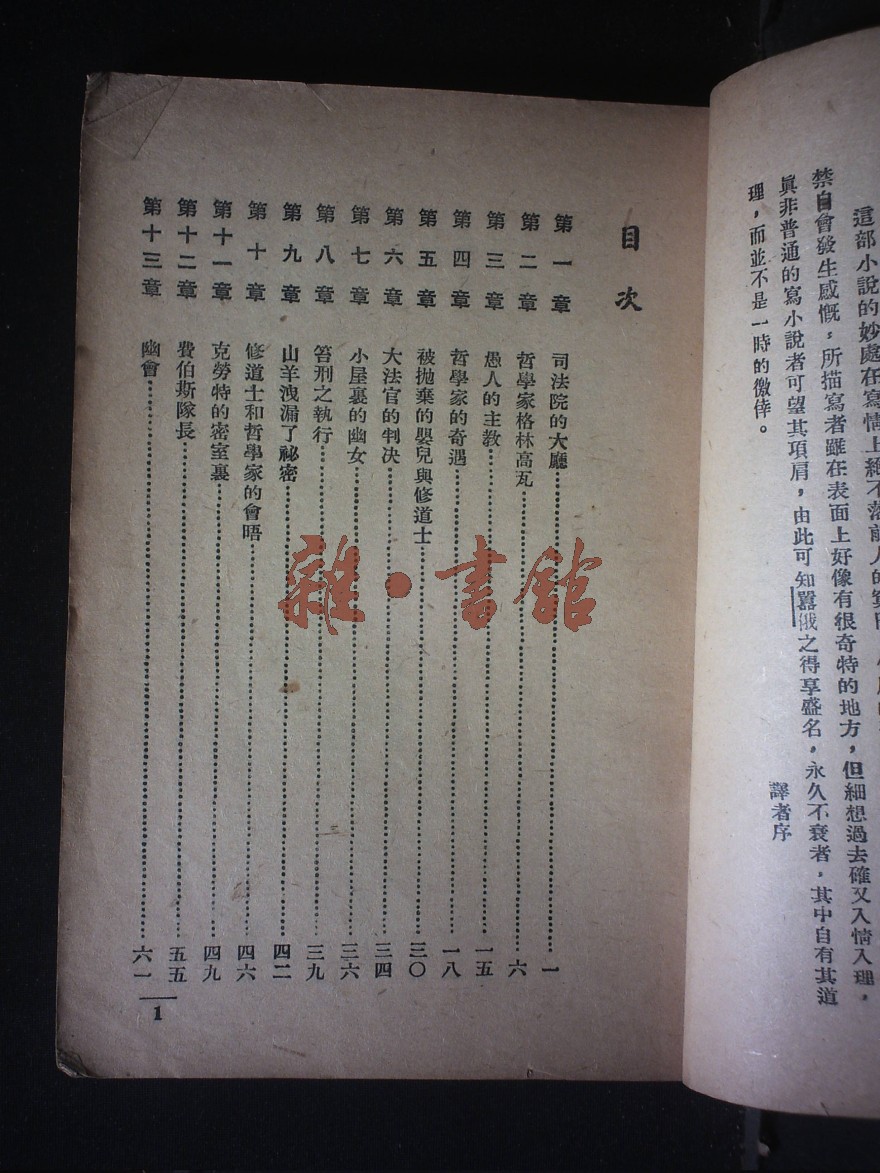 這部小說的妙處在寫情上絕不落前人的
禁自會發生感慨，所描寫者雖在表面上好像有很奇特的地方，但細想過去確又入情入理，
眞非普通的寫小說者可望其項肩，由此可知囂俄之得享盛名，永久不衰者，其中自有其道
理，而並不是一時的徼倖。
譯者序
目次
第一章 司法院的大廳 一
第二章 哲學家格林高瓦 六
第三章 愚人的主教 一五
第四章 哲學家的奇遇 一八
第五章 被拋棄的嬰兒與修道士 三〇
第六章 大法官的判决 三四
第七章 小屋裏的幽女 三六
第八章 笞刑之執行 三九
第九章 山羊洩漏了祕密 四二
第十章 修道士和哲學家的會晤 四六
第十一章 克勞特的密室裏 四九
第十二章 費伯斯隊長 五五
第十三章 幽會 六一
1
雜·書館